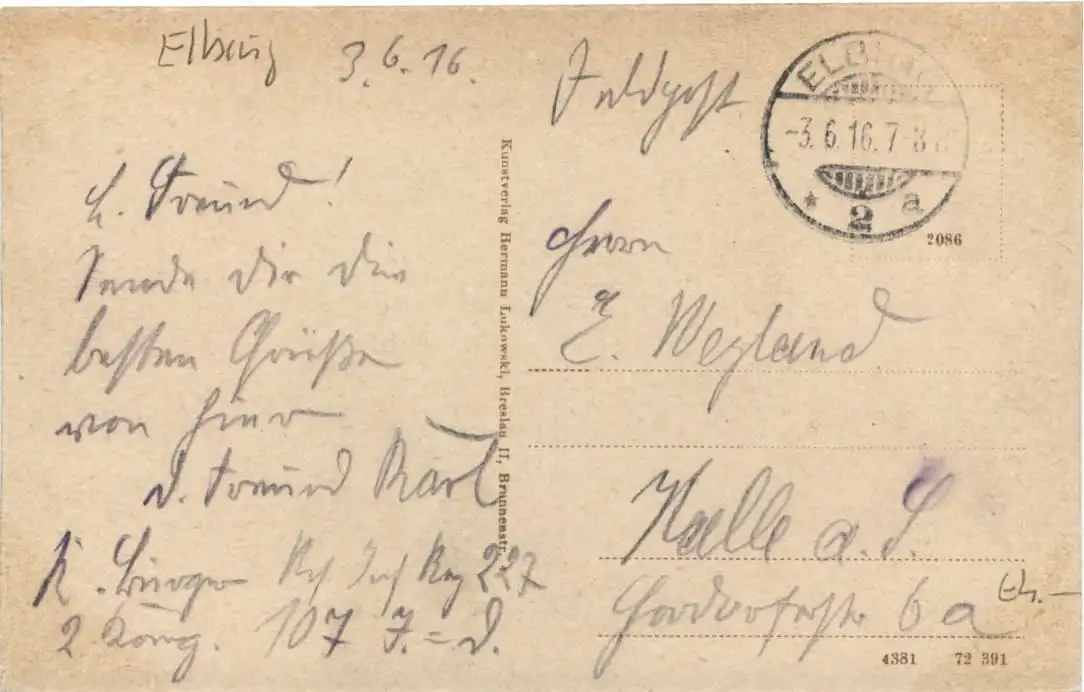 Elbing 3.6.16.
L. Freund!
Sende dir die
besten Grüße
von hier
d. Freund Karl
K. Burger Rs Inf Reg 227
2 Komp. 107 I.=D.
Kunstverlag Hermann Lukowski, Breslau II, Brunnenstr.
Feldpost
ELBING
-3.6.16.7-8
* 2 a
2086
Herrn
E. Weyland
Halle a. S.
6 a
4381 72 391